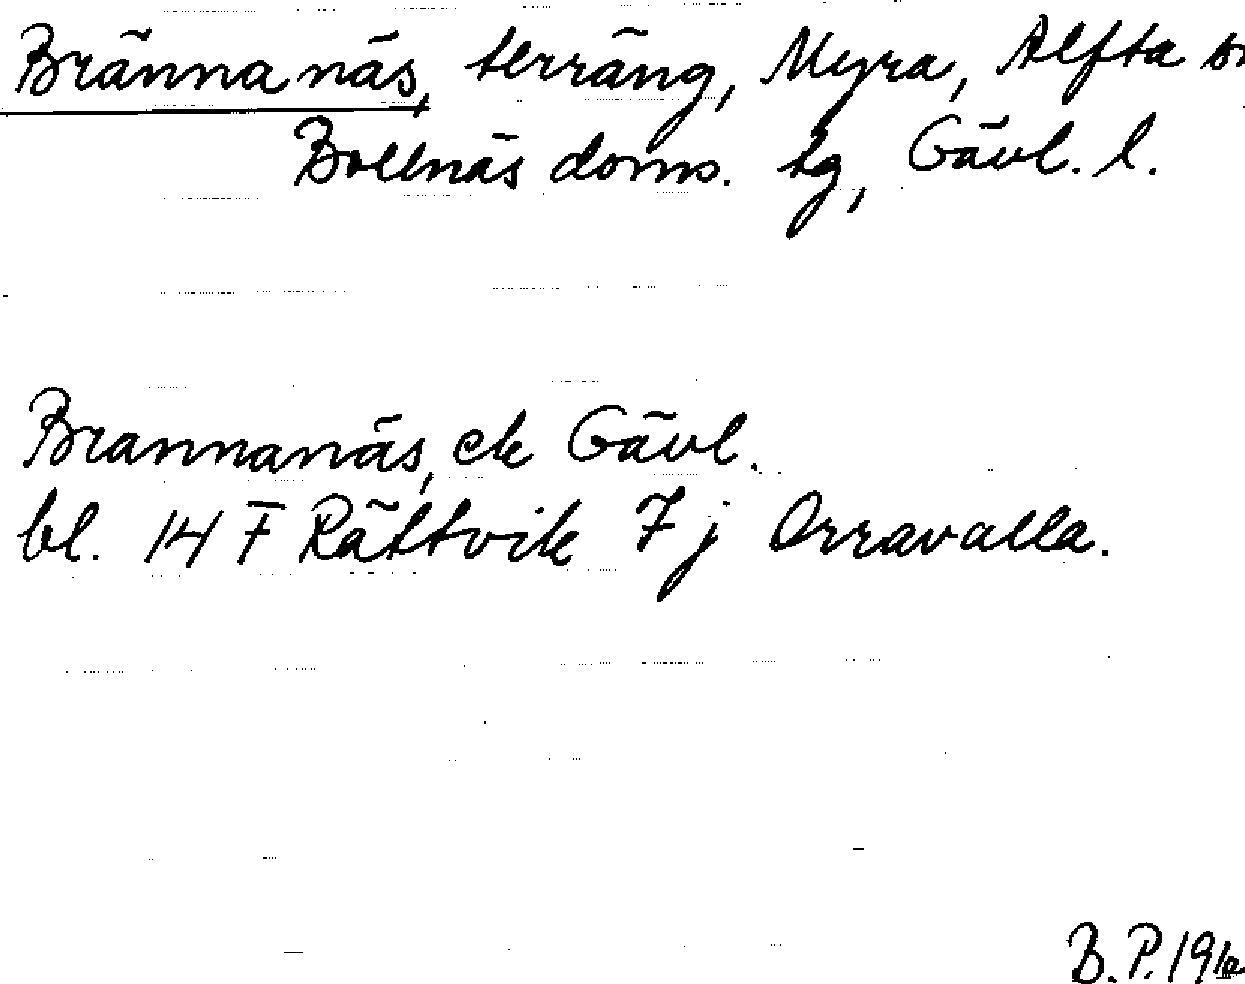 Brännanäs, terräng, Myra, Alfta sn
Bollnäs doms. tg, Gävl. l.
Brannanäs, ek Gävl.
bl. 14 F Rättvik 7 j Orravalla.
B. P. 19